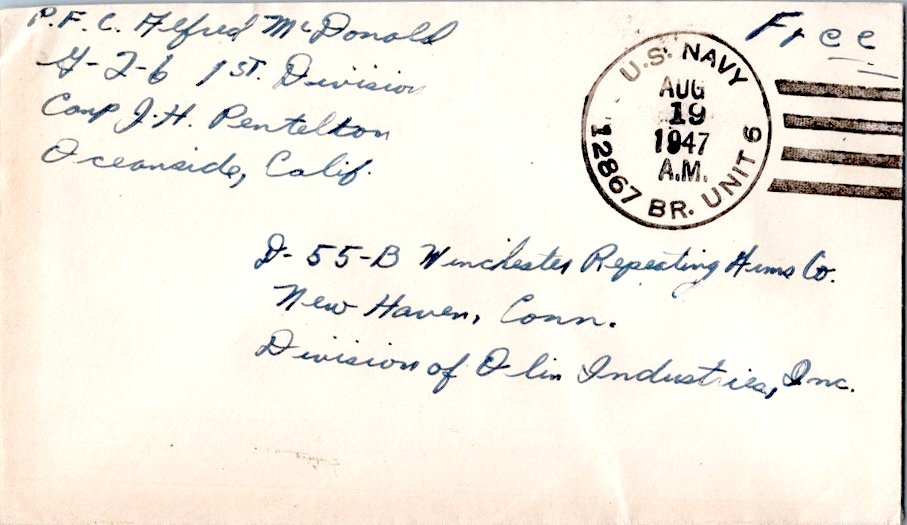 P.F.C. Alfred McDonald
G-2-6 1ST. Division
Camp J.H. Pentelton
Oceanside, Calif.
Free
U.S. NAVY
AUG
19
1947
A.M.
12867 BR. UNIT 6
D-55-B Winchester Repeating Arms Co.
New Haven, Conn.
Division of Olin Industries, Inc.